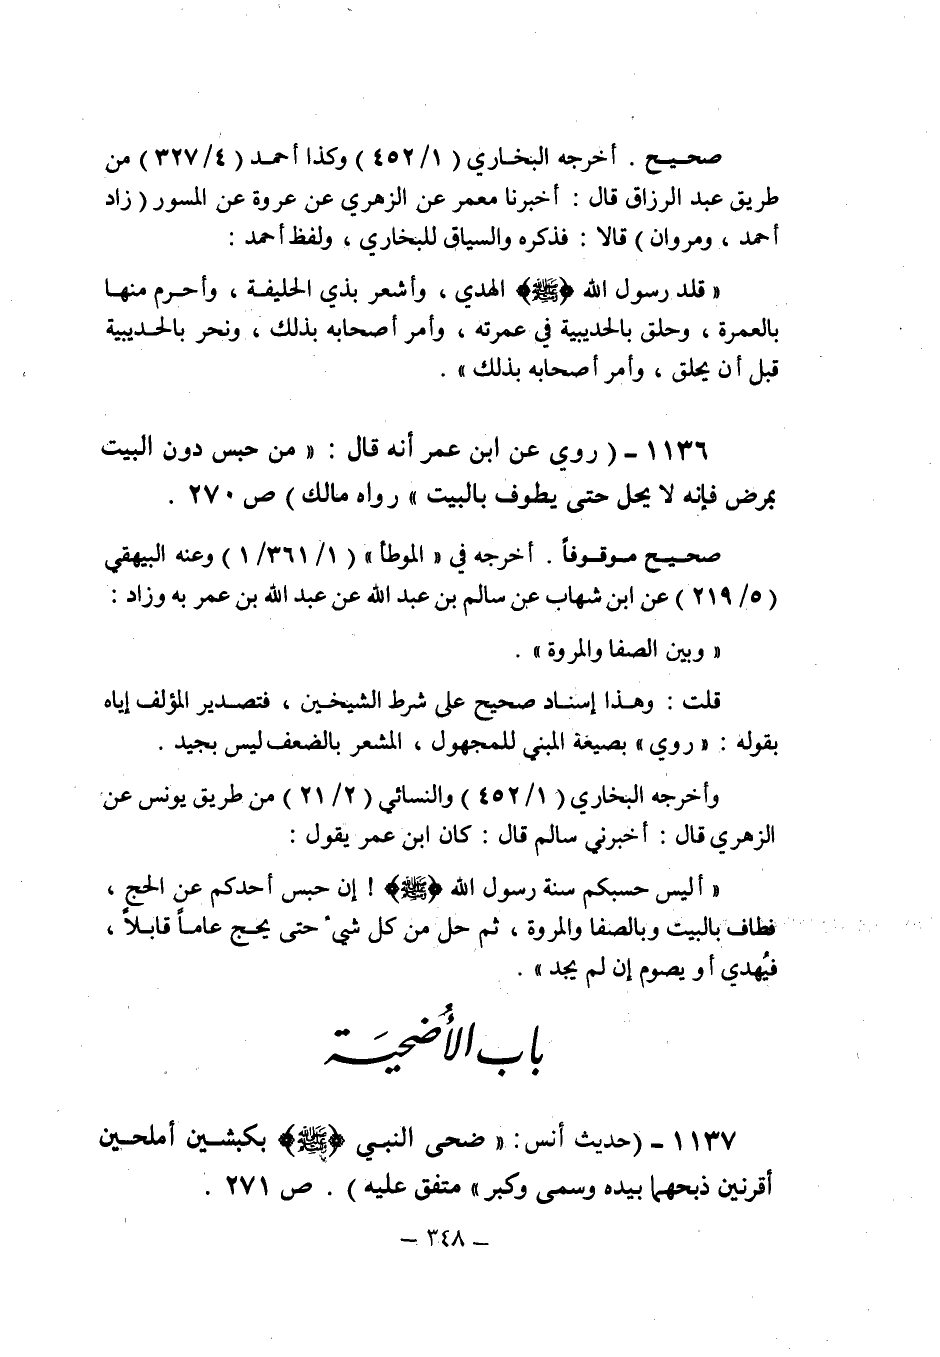 صحيح . أخرجه البخاري ( ١/ ٤٥٢ ) وكذا أحمد ( ٤/ ٣٢٧ ) من
طريق عبد الرزاق قال : أخبرنا معمر عن الزهري عن عروة عن المسور ( زاد
أحمد ، ومروان ) قالا : فذكره والسياق للبخاري ، ولفظ أحمد :
« قلد رسول الله ﴿ﷺ﴾ الهدي ، وأشعر بذي الحليفة ، وأحرم منها
بالعمرة ، وحلق بالحديبية في عمرته ، وأمر أصحابه بذلك ، ونحر بالحديبية
قبل أن يحلق ، وأمر أصحابه بذلك » .
١١٣٦ - ( روي عن ابن عمر أنه قال : « من حبس دون البيت
بمرض فإنه لا يحل حتى يطوف بالبيت » رواه مالك ) ص ٢٧٠ .
صحيح موقوفاً . أخرجه في « الموطأ » ( ١/ ٣٦١/ ١ ) وعنه البيهقي
( ٥/ ٢١٩ ) عن ابن شهاب عن سالم بن عبد الله عن عبد الله بن عمر به وزاد :
« وبين الصفا والمروة » .
قلت : وهذا إسناد صحيح على شرط الشيخين ، فتصدير المؤلف إياه
بقوله : « روي » بصيغة المبني للمجهول ، المشعر بالضعف ليس بجيد .
وأخرجه البخاري ( ١/ ٤٥٢ ) والنسائي ( ٢/ ٢١ ) من طريق يونس عن
الزهري قال : أخبرني سالم قال : كان ابن عمر يقول :
« أليس حسبكم سنة رسول الله ﴿ﷺ﴾ ! إن حبس أحدكم عن الحج ،
فطاف بالبيت وبالصفا والمروة ، ثم حل من كل شيء حتى يحج عاماً قابلاً ،
فيُهدي أو يصوم إن لم يجد » .
باب الأُضحيَة
١١٣٧ - (حديث أنس : « ضحى النبي ﴿ﷺ﴾ بكبشين أملحين
أقرنين ذبحهما بيده وسمى وكبر » متفق عليه ) . ص ٢٧١ .
– ٣٤٨ –